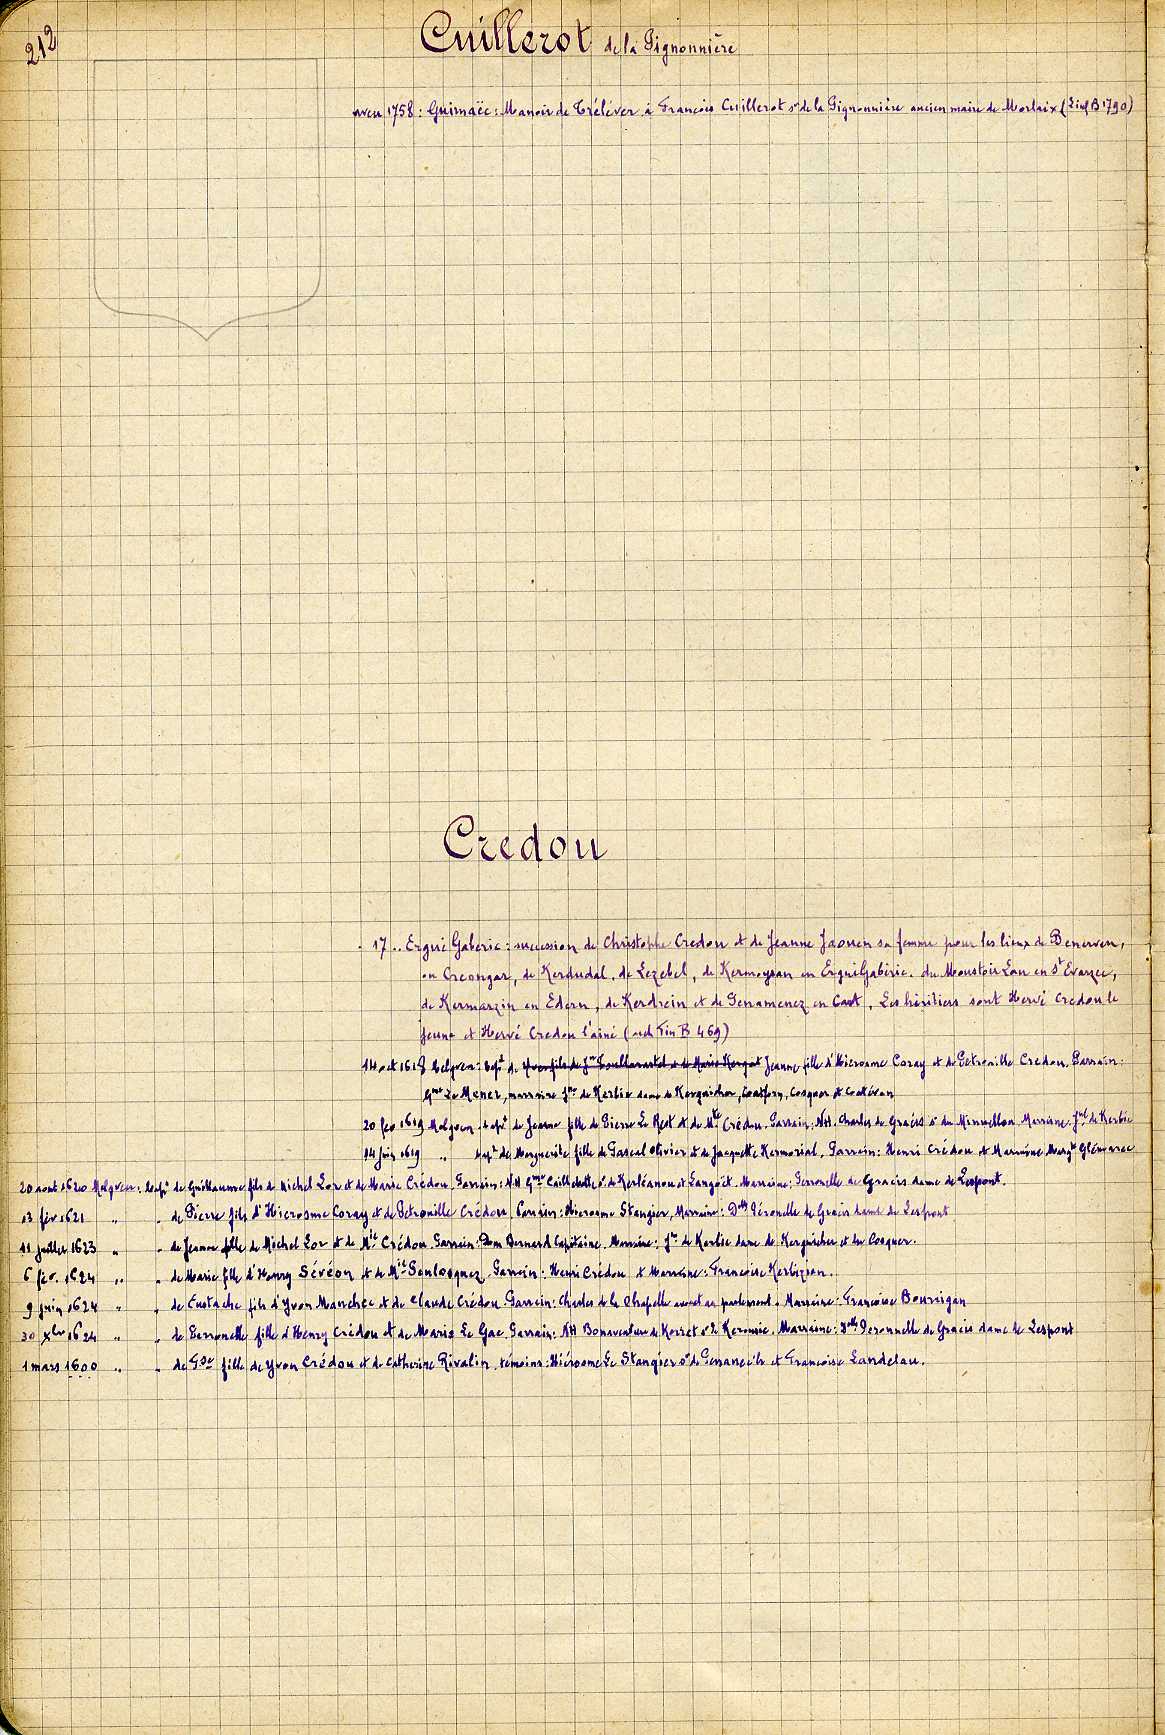 212
Cuillerot de la Pignonnière
aveu 1758 : Guimaëc : Manoir de Tréléver à François Cuillerot sr de la Pignonnière ancien maire de Morlaix (Finist B 1790)
Credou
17.. Ergué Gaberic : succession de Christophe Credou et de Jeanne Jaouen sa femme pour les lieux de Benerven,
en Creongar, de Kerdudal, de Lezebel, de Kermoysan en Ergué Gabéric. du Moustoir Lan en St Evarzec,
de Kermarzin en Edern, de Kerdrein et de Penamenez en Cast. Les héritiers sont Hervé Credou le
jeune et Hervé Credou l'ainé (arch Fin B 469)
14 oct 1618 Melgven : bapt de Jeanne fille d'Hierosme Coray et de Petronille Credou. Parrain :
Gme Le Mener, marraine Jne de Kerlix dame de Kerguicher, Coatforn, Cosquer et Coatéven
20 fev 1619 Melgven : bapt de Jeanne fille de Pierre Le Rest et de Mie Crédou. Parrain : NH. Charles de Graeis sr du Minuellou Marraine : Jne de Kerlic
14 juin 1619 " bapt de Marguerite fille de Pascal Olivier et de Jacquette Kermorial. Parrain : Henri Crédou et Marraine Margte Glémarec
20 aout 1620 Melgven : bapt de Guillaume fils de Michel Lor et de Marie Crédou. Parrain : NH Gme sr de Kerléanou et Langoët. Marraine : Peronelle de Graeis dame de Lespont.
13 fév 1621 " " de Pierre fils d'Hierosme Coray et de Petronille Crédou. Parrain : Hierosme Stangier, Marraine : Dlle Péronelle de Graeis dame de Lespont
11 juillet 1623 " " de Jeanne fille de Michel Lor et de Mie Crédou. Parrain : Dom Bernard Capitaine. Marraine : Jne de Kerlic dame de Kerguicher et du Cosquer.
6 fév. 1624 " " de Marie fille d'Henry Sévéon et de Mie Penlosquez. Parrain : Henri Crédou et Marraine : Françoise Kerbizien.
9 juin 1624 " " de Eustache fils d'Yvon Manchec et de Claude Crédou. Parrain : Charles de la Chapelle avocat au parlement. Marraine : Françoise Bourrigan
30 Xbre 1624 " " de Perronelle fille d'Henry Crédou et de Marie Le Gac. Parrain : NH Bonaventure de Korret sr de Keromic. Marraine : Dlle Peronnelle de Graeis dame de Lespont
1 mars 1600 " " de fille de Yvon Crédou et de Catherine Rivalin. témoins : Hiérosme Le Stangier sr de et Françoise Landelau.